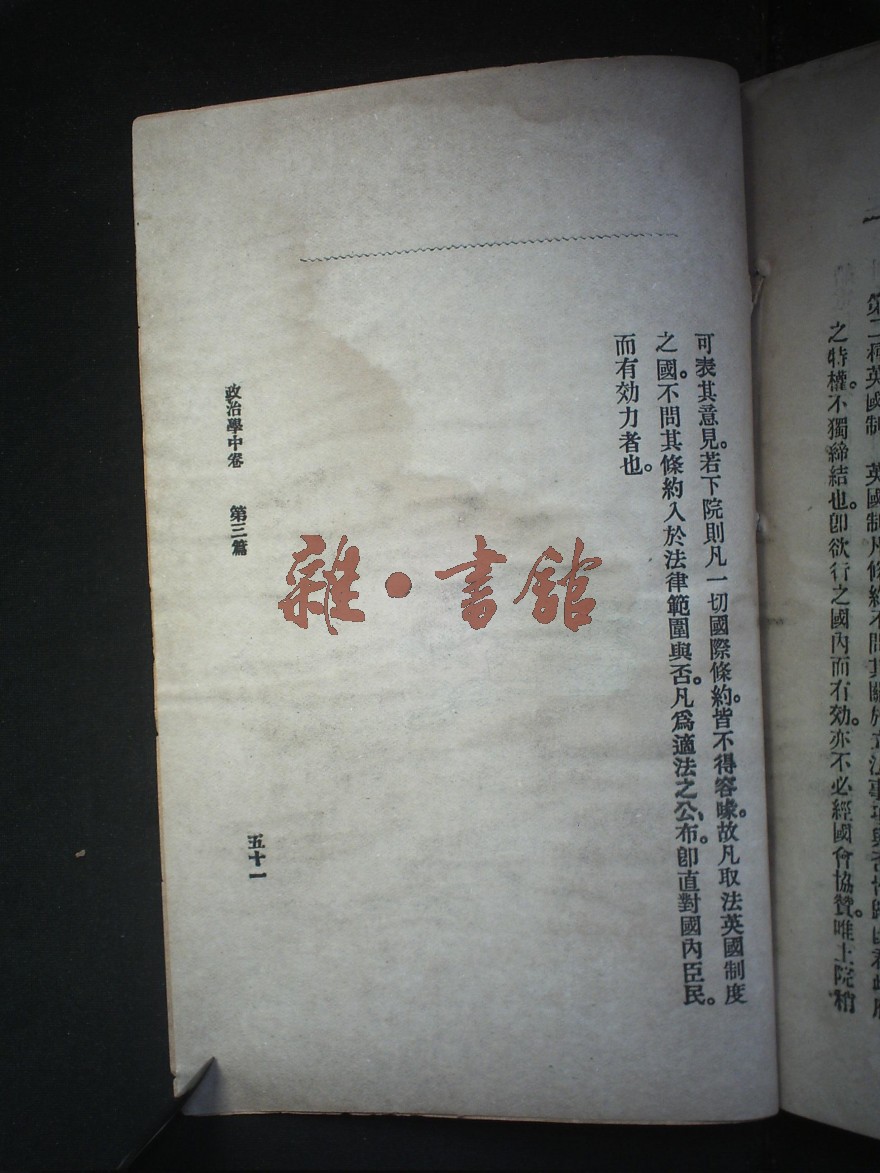 第二種英國制　英國制凡條約不問其關於立法事項與否皆歸
之特權。不獨締結也。卽欲行之國內而有効。亦不必經國會協贊。唯上院稍
可表其意見。若下院則凡一切國際條約。皆不得容喙。故凡取法英國制度
之國。不問其條約入於法律範圍與否。凡爲適法之公布。卽直對國內臣民。
而有効力者也。
政治學中卷　第三篇
五十一
雜·書館